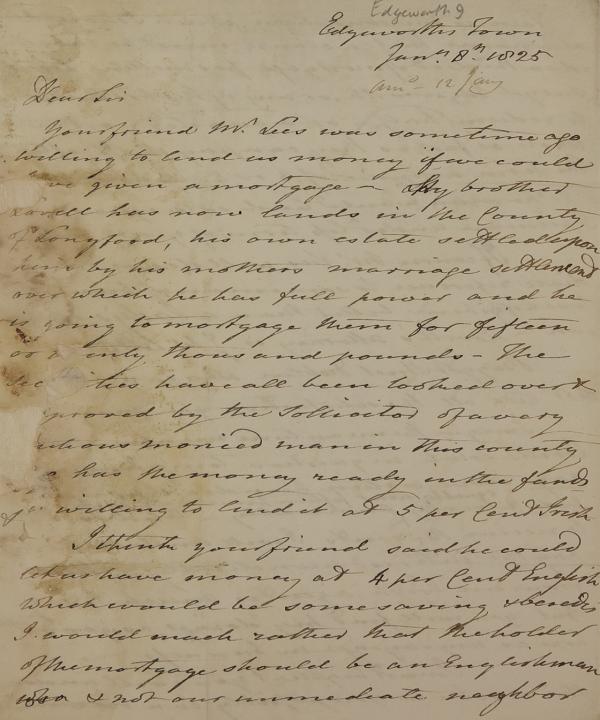 Edgeworth 9
Edgeworths Town
Jany. 8th 1825
ansd – 12 Jany
Dear Sir
Your friend Mr. Lees was sometime ago
willing to lend us money if we could
ve given a mortgage – My brother
Lovell has now lands in the County
of Longford, his own estate settled upon
him by his mothers marriage settlement
over which he has full power and he
is going to mortgage them for fifteen
or enty thousand pounds – The
Sec ities have all been looked over &
proved by the Sollicitor of a very
utious monied man in this county
has the money ready in the funds
willing to lend it at 5 per Cent Irish
I think your friend said he could
let us have money at 4 per Cent English
which would be some saving & besides
I would much rather that the holder
of the mortgage should be an Englishman
& not our immediate neighbor